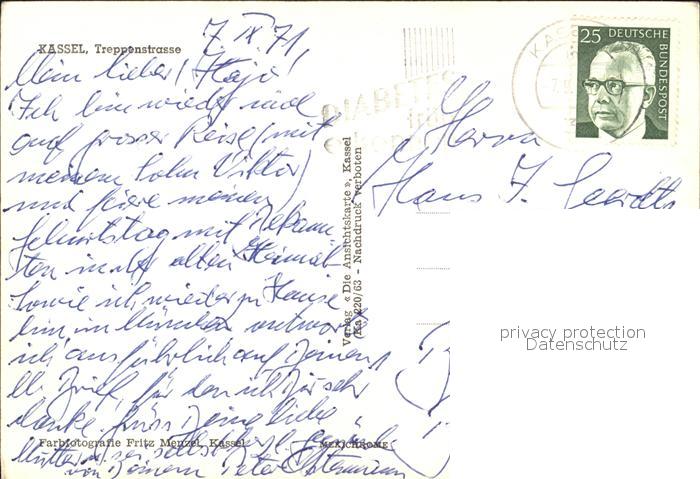 KASSEL, Treppenstrasse
7. IX. 71,
Mein lieber Hajo!
Ich bin wieder mal
auf grosser Reise (mit
meinem Sohn Viktor)
und feiere meinen
Geburtstag mit Bekann-
ten in der alten Heimat.
Sowie ich wieder zu Hause
bin in München antworte
ich ausführlich auf Deinen
lb. Brief, für den ich Dir sehr
danke. Grüss Deine liebe
Farbfotografie Fritz Menzel, Kassel
MEXICHROME
Mutter, sei selbst
von Deinem Peter
Verlag «Die Ansichtskarte», Kassel
(Ka 220/63 - Nachdruck verboten
DIABETES
KASSEL
25 DEUTSCHE
BUNDESPOST
Herrn
Hans J.
privacy protection
Datenschutz